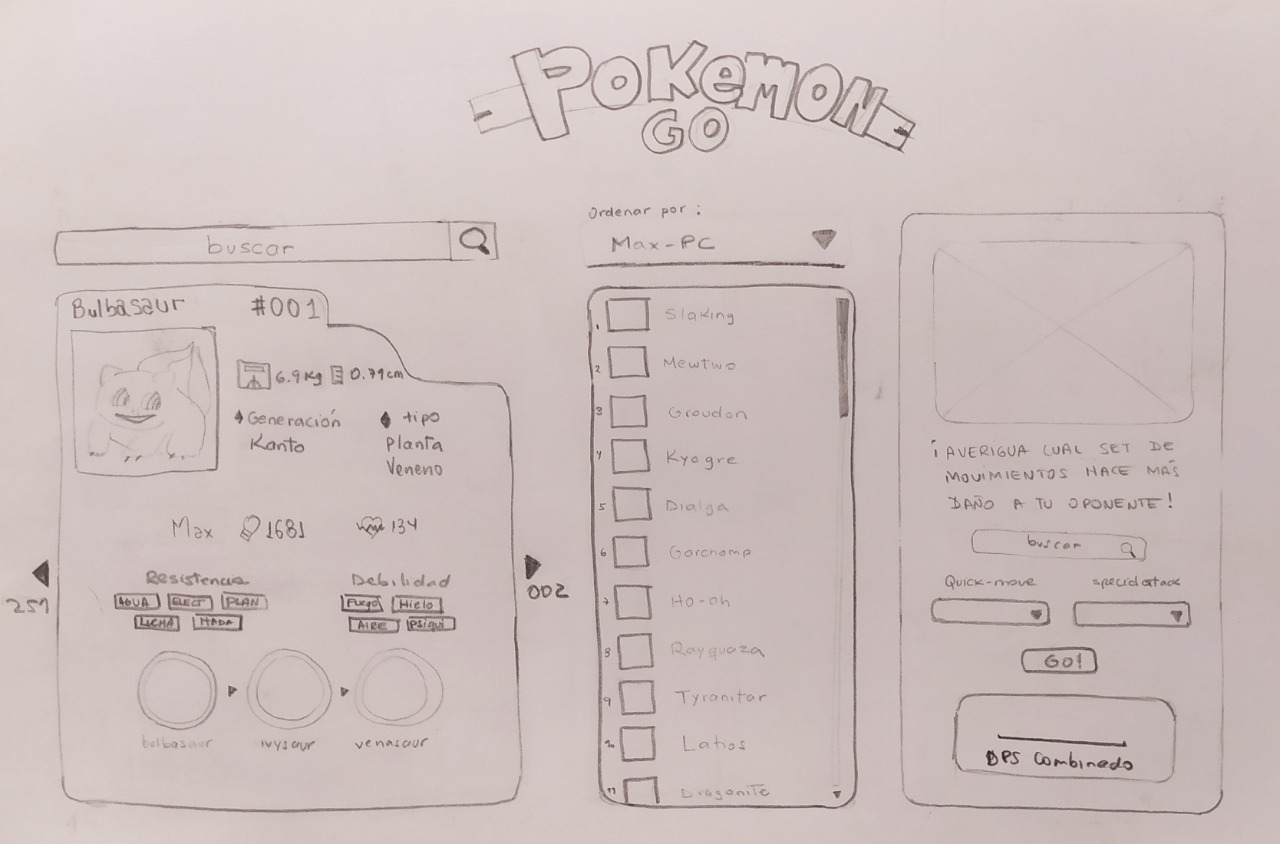 POKEMON
GO
buscar
Bulbasaur #001
6.9Kg 0.71cm
Generación
Kanto
tipo
Planta
Veneno
Max 1681 134
Resistencia
AGUA ELECT PLAN
LUCHA HADA
Debilidad
Fuego Hielo
AIRE PSIQUI
251
002
bulbasaur ivysaur venasaur
Ordenar por :
Max-PC
1 Slaking
2 Mewtwo
3 Groudon
4 Kyogre
5 Dialga
6 Garchomp
7 Ho-oh
8 Rayquaza
9 Tyranitar
10 Latios
11 Dragonite
¡AVERIGUA CUAL SET DE
MOVIMIENTOS HACE MÁS
DAÑO A TU OPONENTE!
buscar
Quick-move
special attack
GO!
DPS Combinado